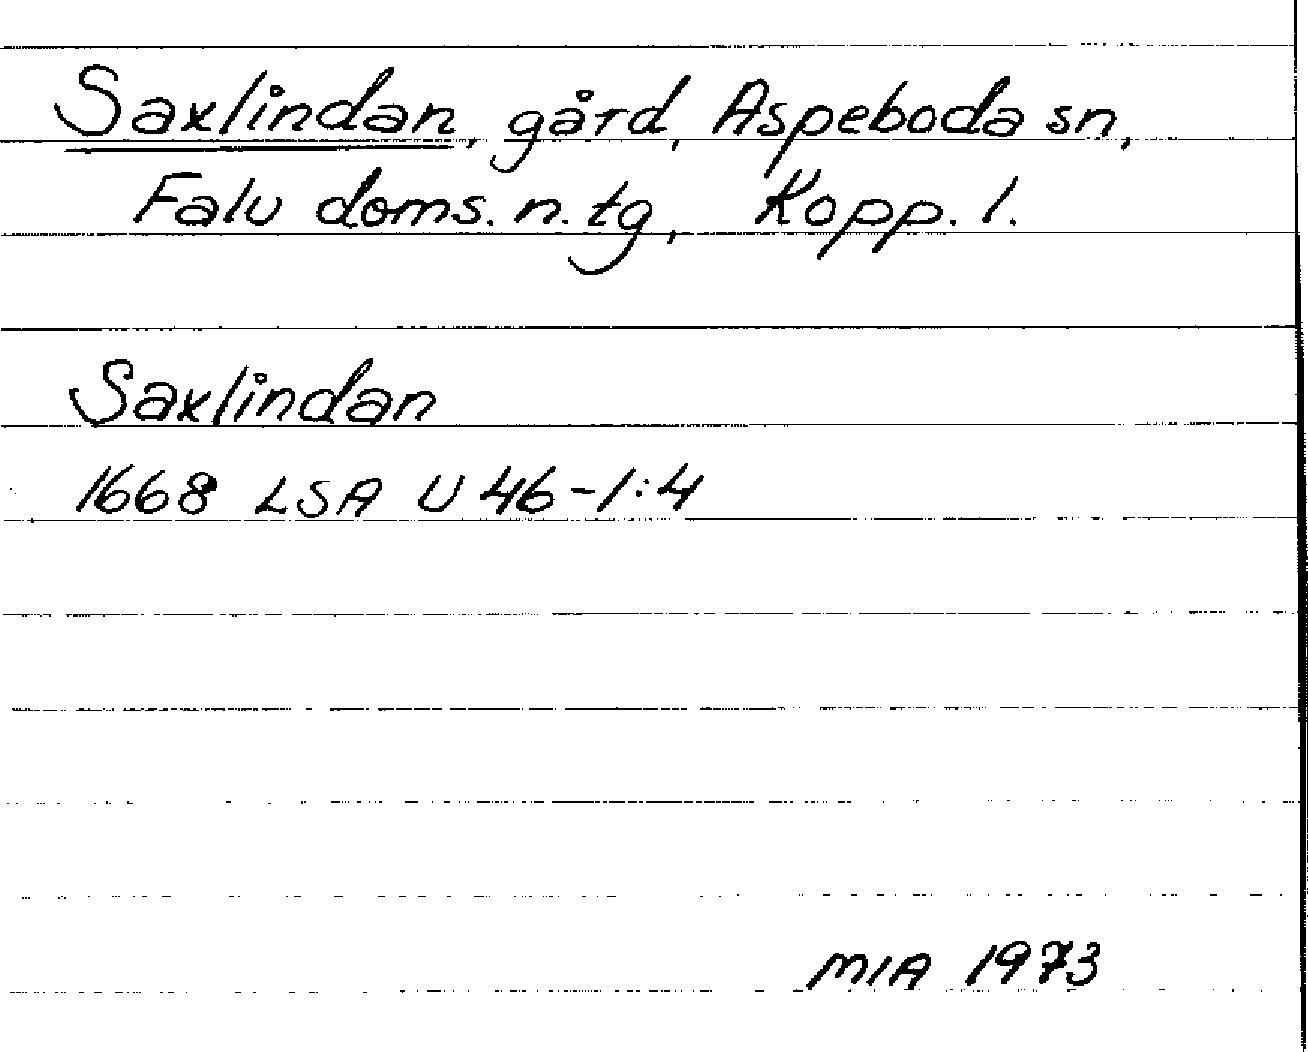 Saxlindan, gård, Aspeboda sn,
Falu doms. n. tg, Kopp. l.
Saxlindan
1668 LSA U 46-1:4
MIA 1973